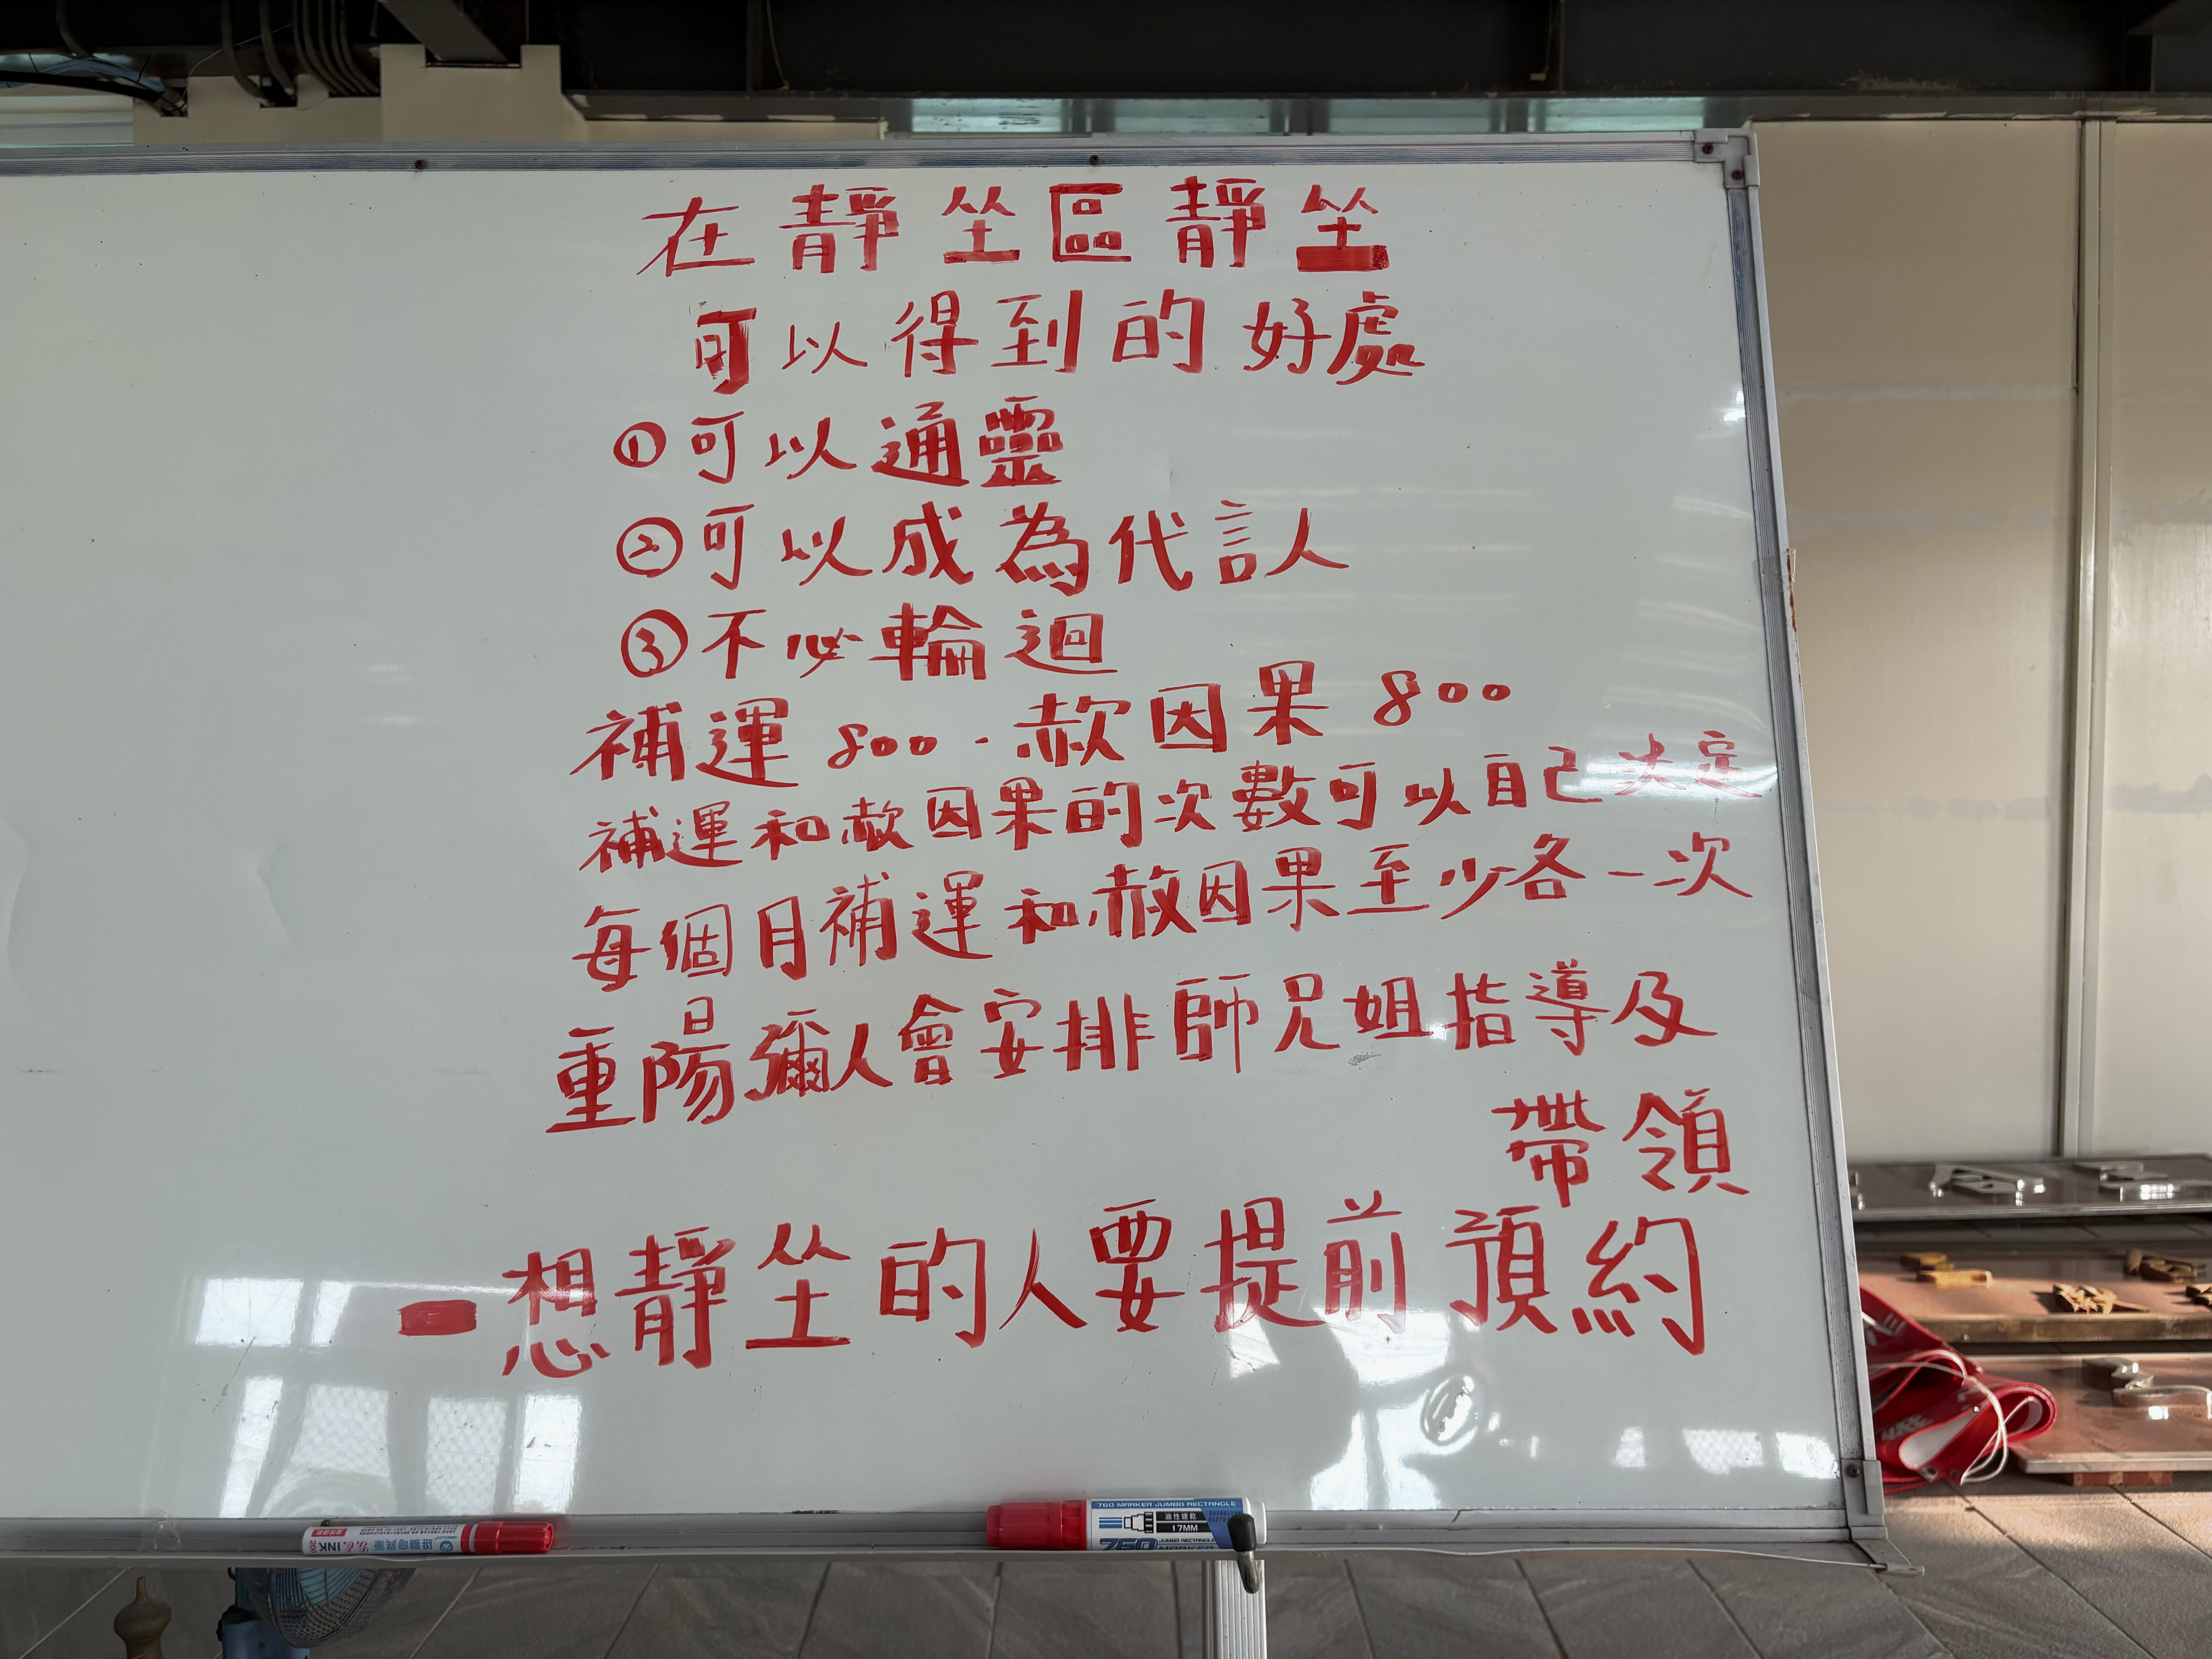 在靜坐區靜坐
可以得到的好處
①可以通靈
②可以成為代言人
③不必輪迴
補運800.赦因果800
補運和赦因果的次數可以自己決定
每個月補運和赦因果至少各一次
重陽彌人會安排師兄姐指導及
帶領
想靜坐的人要提前預約
760 MARKER JUMBO RECTANGLE
油性速乾
17MM
760 MARKER
JUMBO RECTANGLE
INK